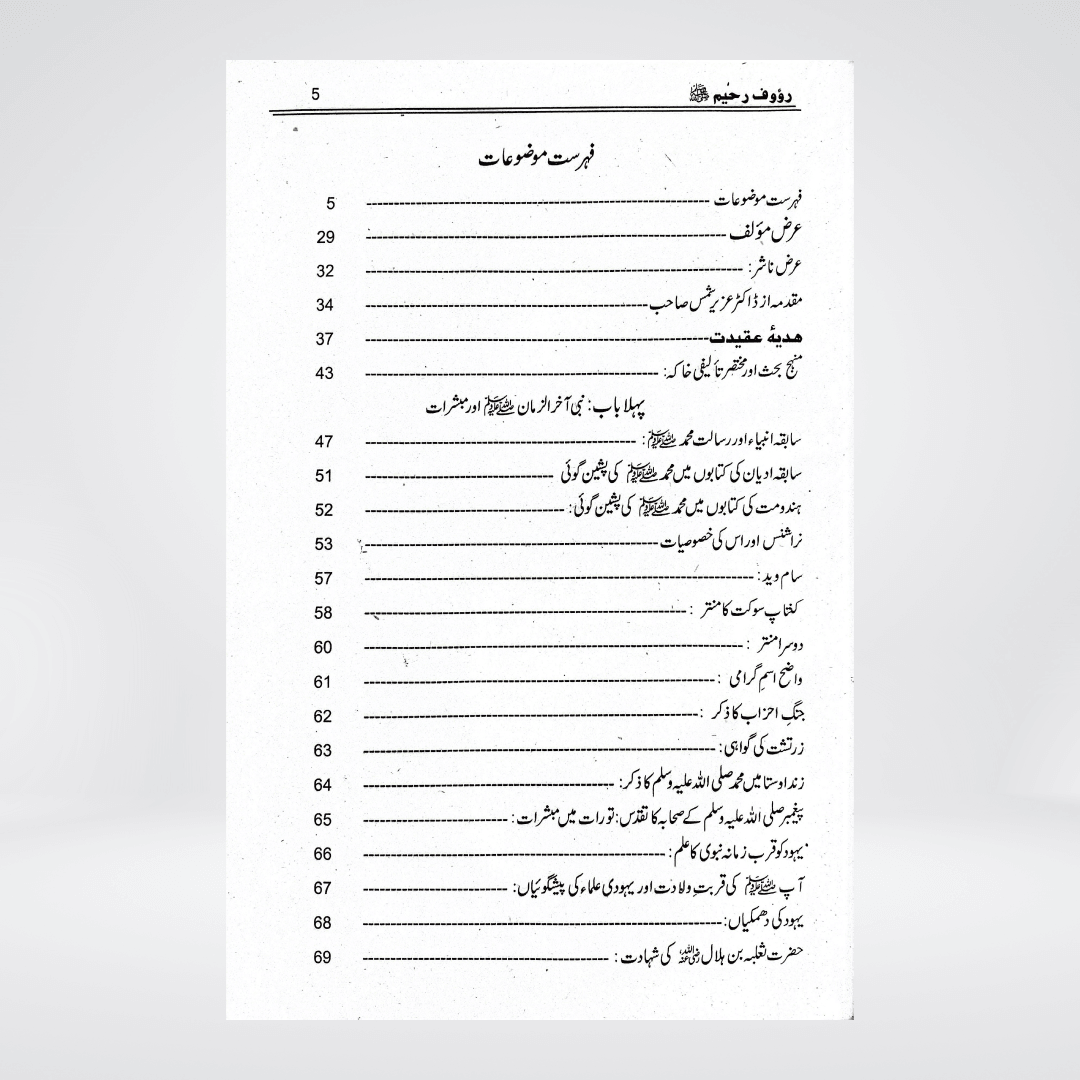 رؤوف رحیم ﷺ 5
فہرست موضوعات
فہرست موضوعات ---------- 5
عرض مؤلف ---------- 29
عرض ناشر: ---------- 32
مقدمہ از ڈاکٹر عزیر شمس صاحب ---------- 34
هدیۂ عقیدت ---------- 37
منہج بحث اور مختصر تألیفی خاکہ: ---------- 43
پہلا باب: نبی آخر الزمان ﷺ اور مبشرات
سابقہ انبیاء اور رسالت محمد ﷺ: ---------- 47
سابقہ ادیان کی کتابوں میں محمد ﷺ کی پشین گوئی ---------- 51
ہندومت کی کتابوں میں محمد ﷺ کی پشین گوئی: ---------- 52
نراشنس اور اس کی خصوصیات ---------- 53
سام وید: ---------- 57
کنتاپ سوکت کا منتر : ---------- 58
دوسرا منتر : ---------- 60
واضح اسمِ گرامی : ---------- 61
جنگِ احزاب کا ذکر : ---------- 62
زرتشت کی گواہی: ---------- 63
زند اوستا میں محمد صلی اللہ علیہ وسلم کا ذکر: ---------- 64
پیغمبر صلی اللہ علیہ وسلم کے صحابہ کا تقدس: تورات میں مبشرات: ---------- 65
یہود کو قرب زمانہ نبوی کا علم: ---------- 66
آپ ﷺ کی قربت ولادت اور یہودی علماء کی پیشگوئیاں: ---------- 67
یہود کی دھمکیاں: ---------- 68
حضرت ثعلبہ بن ہلال رضی اللہ عنہ کی شہادت : ---------- 69